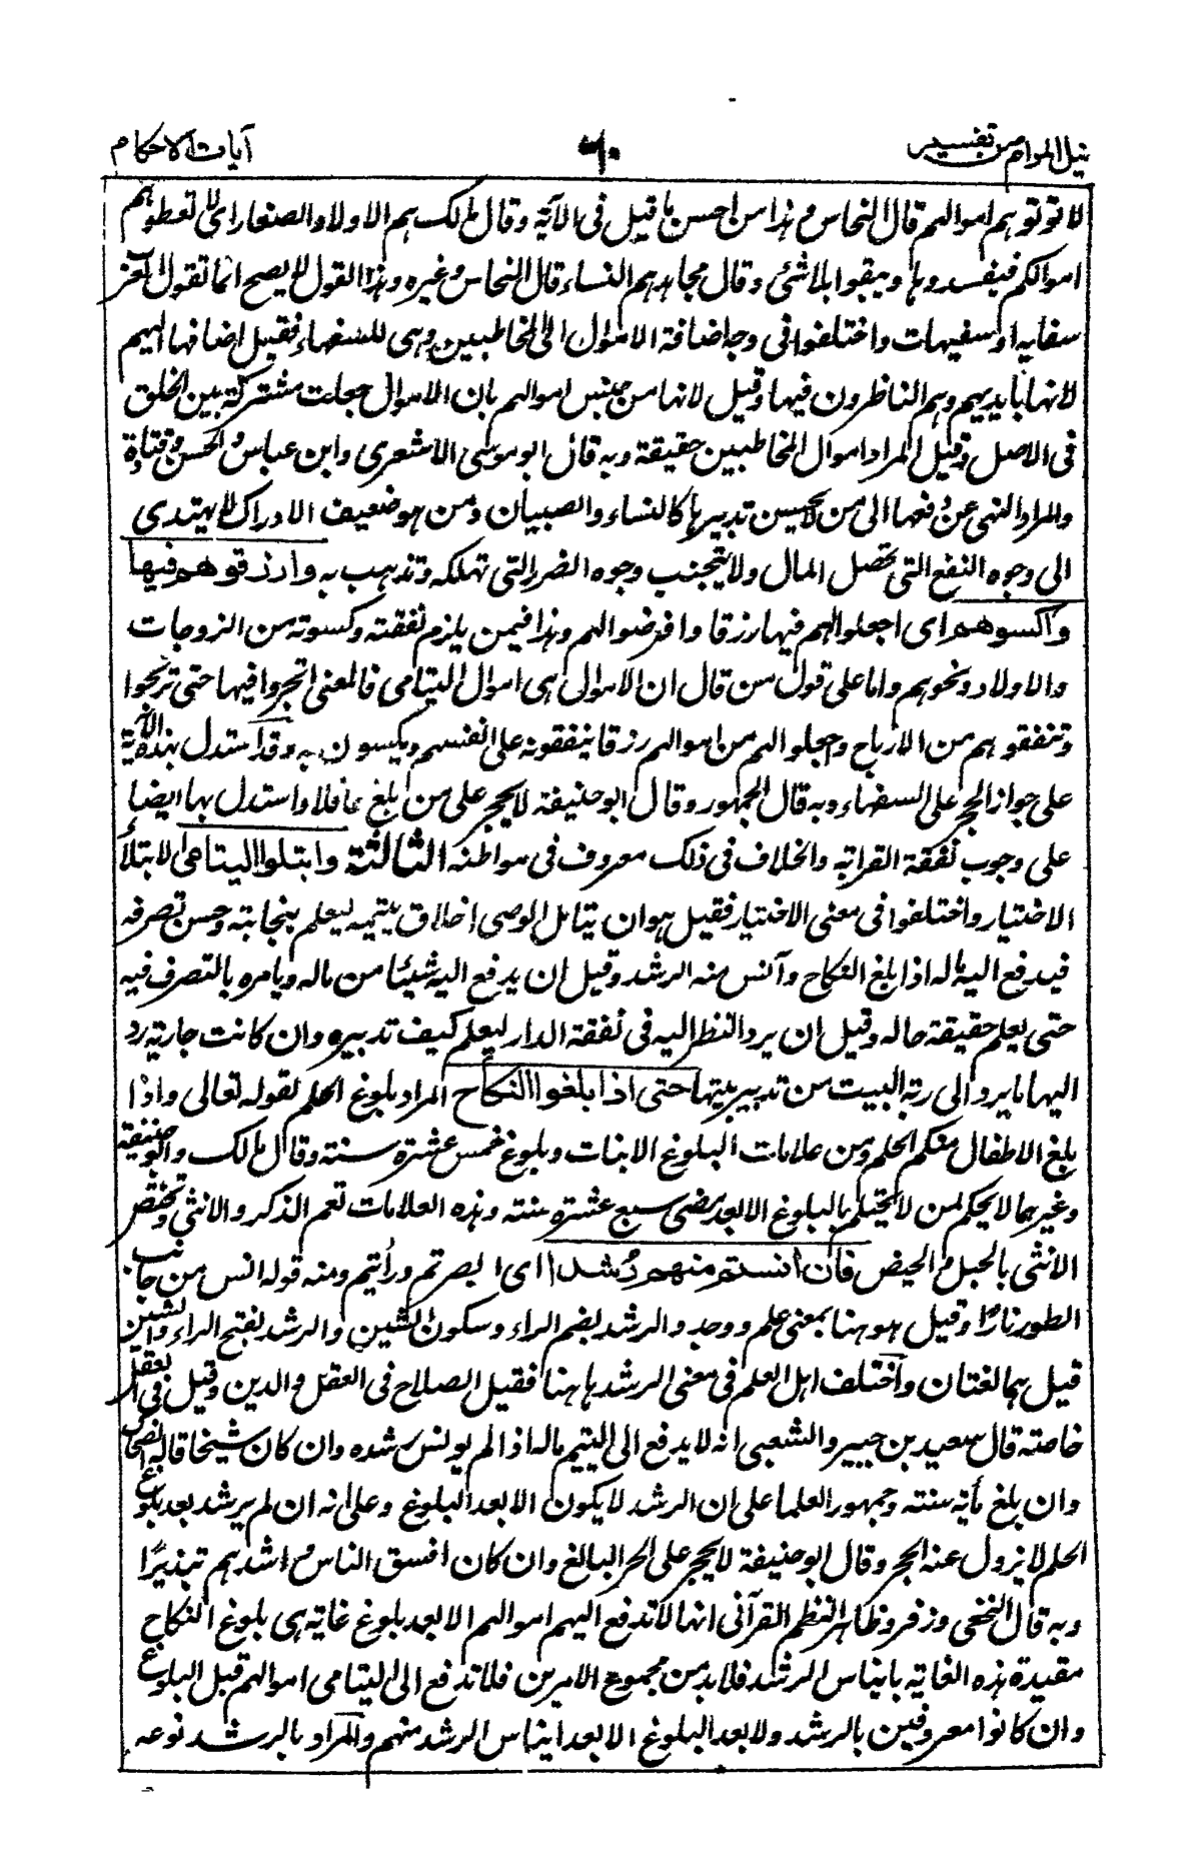 نيل المرام من تفسير ٦٠ آيات الاحكام
لا توتوهم اموالهم قال النحاس وهذا من احسن ما قيل فى الآية وقال مالك هم الاولاد الصغار اى لا تعطوهم
اموالكم فيفسدوها ويبقوا بلا شئ وقال مجاهد هم النساء قال النحاس وغيره وهذا القول لا يصح انما تقول العرب
سفايه او سفيهات واختلفوا فى وجه اضافة الاموال الى المخاطبين وهى للسفهاء فقيل اضافها اليهم
لانها بأيديهم وهم الناظرون فيها وقيل لانها من جنس اموالهم بان الاموال جعلت مشتركة بين الخلق
فى الاصل وقيل المراد اموال المخاطبين حقيقة وبه قال ابو موسى الاشعرى وابن عباس والحسن وقتادة
والمراد النهى عن دفعها الى من لا يحسن تدبيرها كالنساء والصبيان ومن هو ضعيف الادراك لا يهتدى
الى وجوه النفع التى تحصل المال ولا يتجنب وجوه الضرر التى تهلكه وتذهب به وارزقوهم فيها
واكسوهم اى اجعلوا لهم فيها رزقا وافرضوا لهم وهذا فيمن يلزم نفقته وكسوته من الزوجات
والاولاد ونحوهم واما على قول من قال ان الاموال هى اموال اليتامى فالمعنى اتجروا فيها حتى تربحوا
وتنفقوهم من الارباح واجعلوا لهم من اموالهم رزقا ينفقونه على انفسهم ويكسون به وقد استدل بهذه الآية
على جواز الحجر على السفهاء وبه قال الجمهور وقال ابو حنيفة لا يحجر على من بلغ عاقلا واستدل بها ايضا
على وجوب نفقة القرابة والخلاف فى ذلك معروف فى مواطنه الثالثة وابتلوا اليتامى الابتلاء
الاختيار واختلفوا فى معنى الاختيار فقيل هو ان يتامل الوصى اخلاق يتيمه ليعلم بنجابته وحسن تصرفه
فيدفع اليه ماله اذا بلغ النكاح وآنس منه الرشد وقيل ان يدفع اليه شيئا من ماله ويامره بالتصرف فيه
حتى يعلم حقيقة حاله وقيل ان يرد النظر اليه فى نفقة الدار ليعلم كيف تدبيره وان كانت جارية رد
اليها ما يرد الى ربة البيت من تدبير بيتها حتى اذا بلغوا النكاح المراد بلوغ الحلم لقوله تعالى واذا
بلغ الاطفال منكم الحلم ومن علامات البلوغ الانبات وبلوغ خمس عشرة سنة وقال مالك وابو حنيفة
وغيرهما لا يحكم لمن لا يحتلم بالبلوغ الا بعد مضى سبع عشرة سنة وهذه العلامات تعم الذكر والانثى وتختص
الانثى بالحبل والحيض فان انستم منهم رشدا اى ابصرتم ورأيتم ومنه قوله انس من جانب
الطور نارًا وقيل هو هنا بمعنى علم ووجد والرشد بضم الراء وسكون الشين والرشد بفتح الراء والشين
قيل هما لغتان واختلف اهل العلم فى معنى الرشد هاهنا فقيل الصلاح فى العقل والدين وقيل فى العقل
خاصة قال سعيد بن جبير والشعبى انه لا يدفع الى اليتيم ماله اذا لم يونس رشده وان كان شيخا قال الضحاك
وان بلغ مأية سنة وجمهور العلما على ان الرشد لا يكون الا بعد البلوغ وعلى انه ان لم يرشد بعد بلوغ
الحلم لا يزول عنه الحجر وقال ابو حنيفة لا يحجر على الحر البالغ وان كان افسق الناس واشدهم تبذيرًا
وبه قال النخعى وزفر وظاهر النظم القرآنى انها لا تدفع اليهم اموالهم الا بعد بلوغ غاية هى بلوغ النكاح
مقيدة هذه الغاية بايناس الرشد فلا بد من مجموع الامرين فلا تدفع الى اليتامى اموالهم قبل البلوغ
وان كانوا معروفين بالرشد ولا بعد البلوغ الا بعد ايناس الرشد منهم والمراد بالرشد نوعه